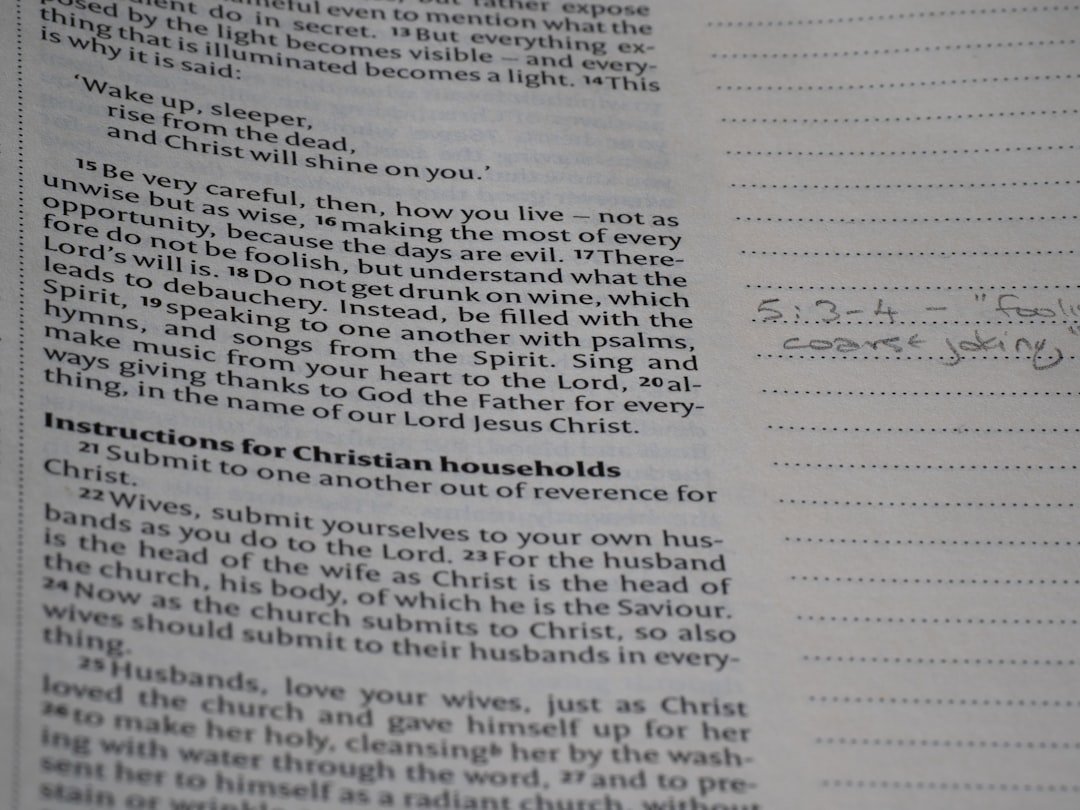 but rather expose
shameful even to mention what the
disobedient do in secret. 13 But everything ex-
posed by the light becomes visible – and every-
thing that is illuminated becomes a light. 14 This
is why it is said:
‘Wake up, sleeper,
rise from the dead,
and Christ will shine on you.’
15 Be very careful, then, how you live – not as
unwise but as wise, 16 making the most of every
opportunity, because the days are evil. 17 There-
fore do not be foolish, but understand what the
Lord’s will is. 18 Do not get drunk on wine, which
leads to debauchery. Instead, be filled with the
Spirit, 19 speaking to one another with psalms,
hymns, and songs from the Spirit. Sing and
make music from your heart to the Lord, 20 al-
ways giving thanks to God the Father for every-
thing, in the name of our Lord Jesus Christ.
Instructions for Christian households
21 Submit to one another out of reverence for
Christ.
22 Wives, submit yourselves to your own hus-
bands as you do to the Lord. 23 For the husband
is the head of the wife as Christ is the head of
the church, his body, of which he is the Saviour.
24 Now as the church submits to Christ, so also
wives should submit to their husbands in every-
thing.
25 Husbands, love your wives, just as Christ
loved the church and gave himself up for her
26 to make her holy, cleansing b her by the wash-
ing with water through the word, 27 and to pre-
sent her to himself as a radiant church, without
stain or wrinkle
5:3-4 - "fooli
coarse joking,"